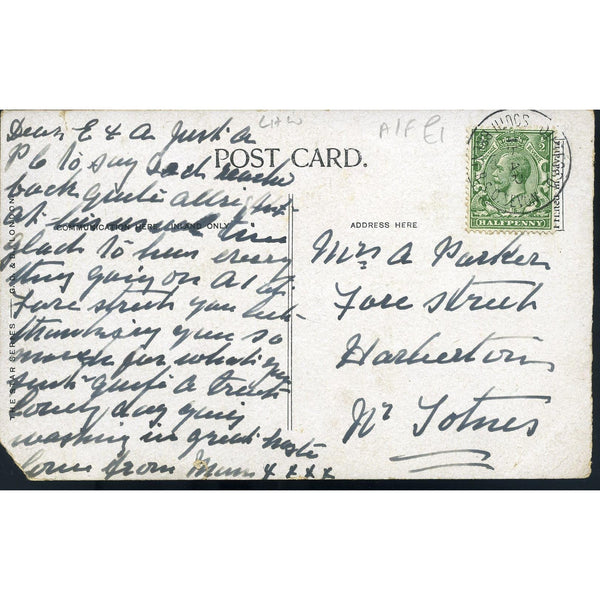 Dear E & A Just a
P C to say Jack
back quite allright
at his
glad to hear every
thing going on at
Fore street you
thanking you so
much for what you
sent quite a treat
lovely day going
washing in great haste
love from Mum x x x x
POST CARD.
COMMUNICATION HERE INLAND ONLY
ADDRESS HERE
Mrs A Parker
Fore street
Harberton
Nr Totnes
HALFPENNY
THE STAR SERIES — G.D. & D. LONDON
A/F £1